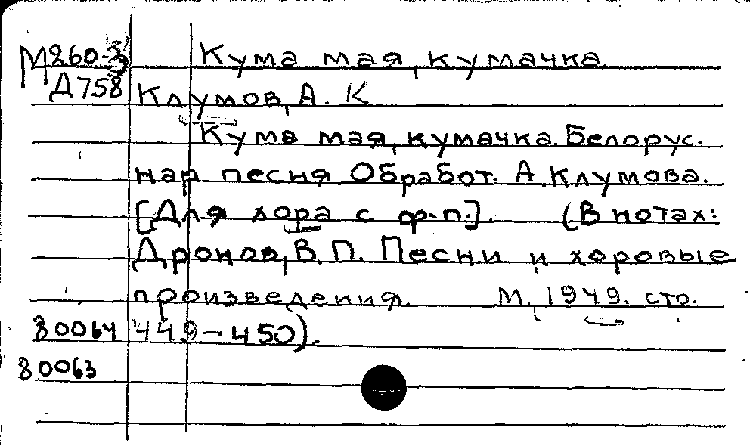 М260-3 Кума мая, кумачка.
Д758 Клумов, А. К
Кума мая, кумачка. Белорус.
нар песня Обработ. А. Клумова.
[Для хора с ф-п.]. (В нотах:
Дронов, В. П. Песни и хоровые
произведения. М. 1949. сто.
80064 449-450).
80063